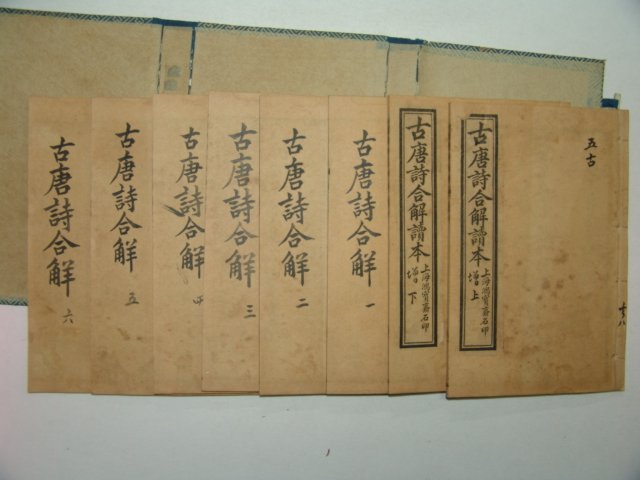 五古
共八
古唐詩合解讀本 上海鴻寶齋石印
增上
古唐詩合解讀本 上海鴻寶齋石印
增下
古唐詩合解 一
古唐詩合解 二
古唐詩合解 三
古唐詩合解 四
古唐詩合解 五
古唐詩合解 六